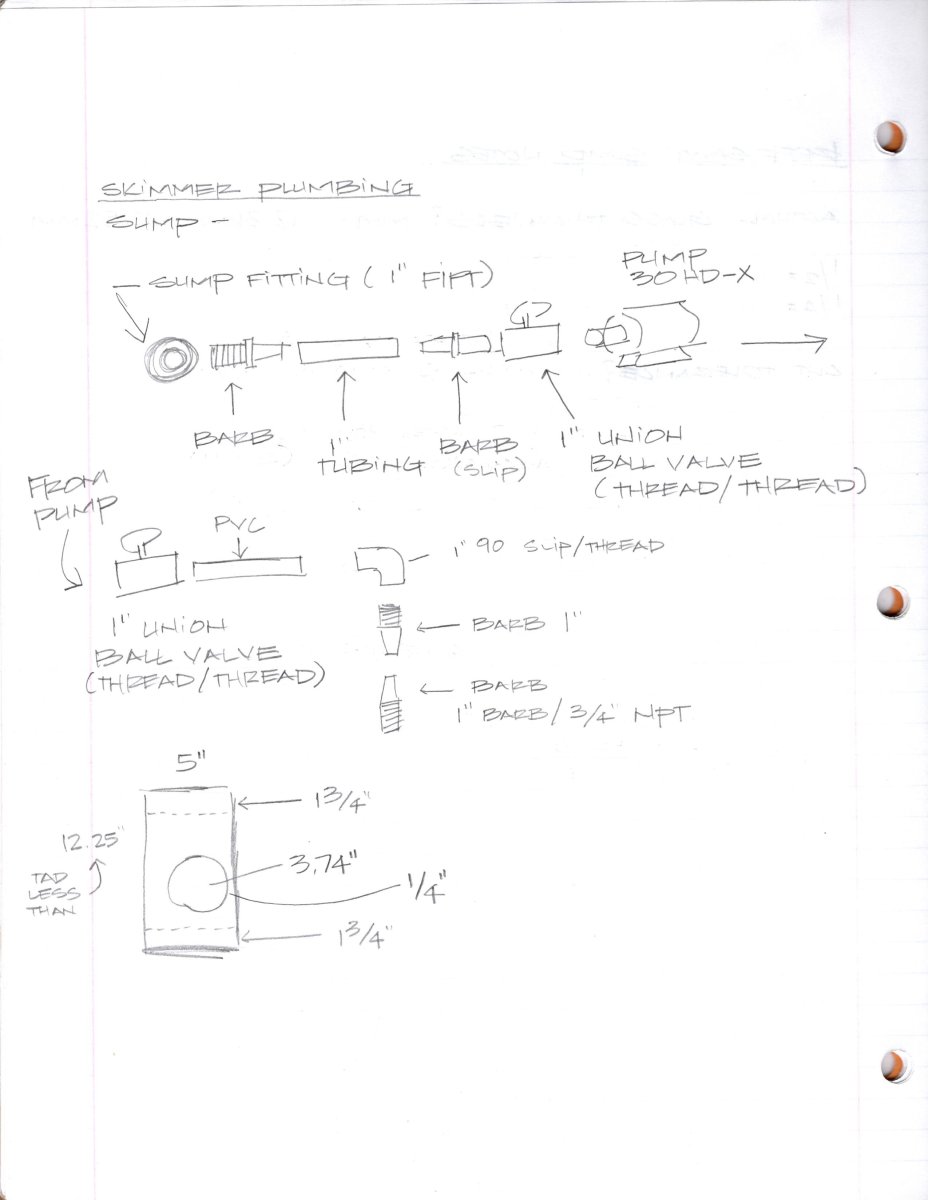 SKIMMER PLUMBING
SUMP -
SUMP FITTING (1" FIPT)
PUMP
30 HD-X
BARB
1"
TUBING
BARB
(SLIP)
1" UNION
BALL VALVE
(THREAD/THREAD)
FROM
PUMP
PVC
1" 90 SLIP/THREAD
1" UNION
BALL VALVE
(THREAD/THREAD)
BARB 1"
BARB
1" BARB/3/4" NPT
5"
1 3/4"
12.25"
TAD
LESS
THAN
3.74"
1/4"
1 3/4"